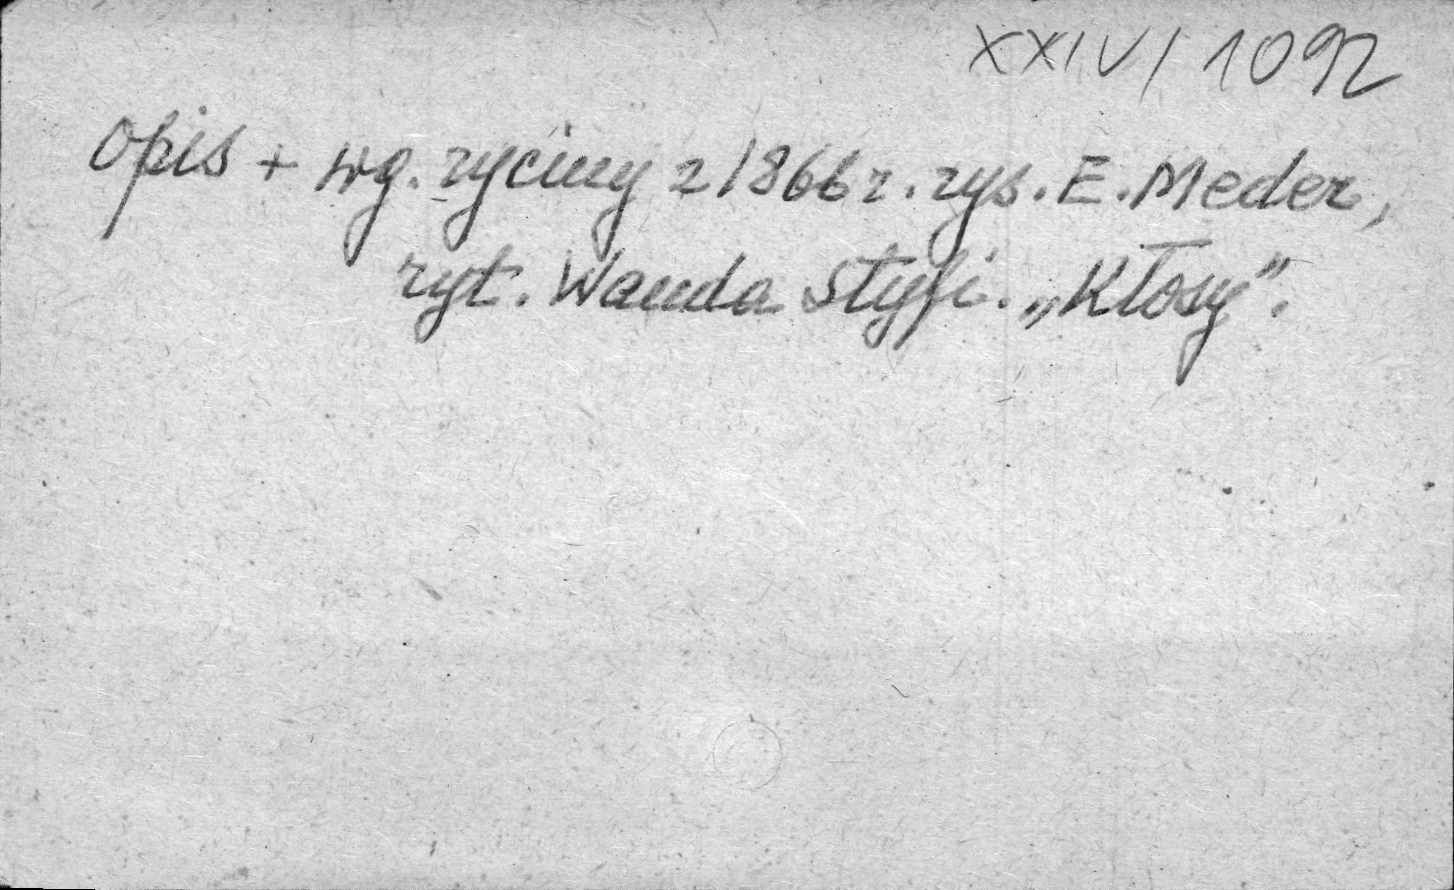 XXIV/1092
Opis + wg. ryciny z 1866 r. rys. E. Meder,
ryt. Wanda Styfi. „Kłosy".